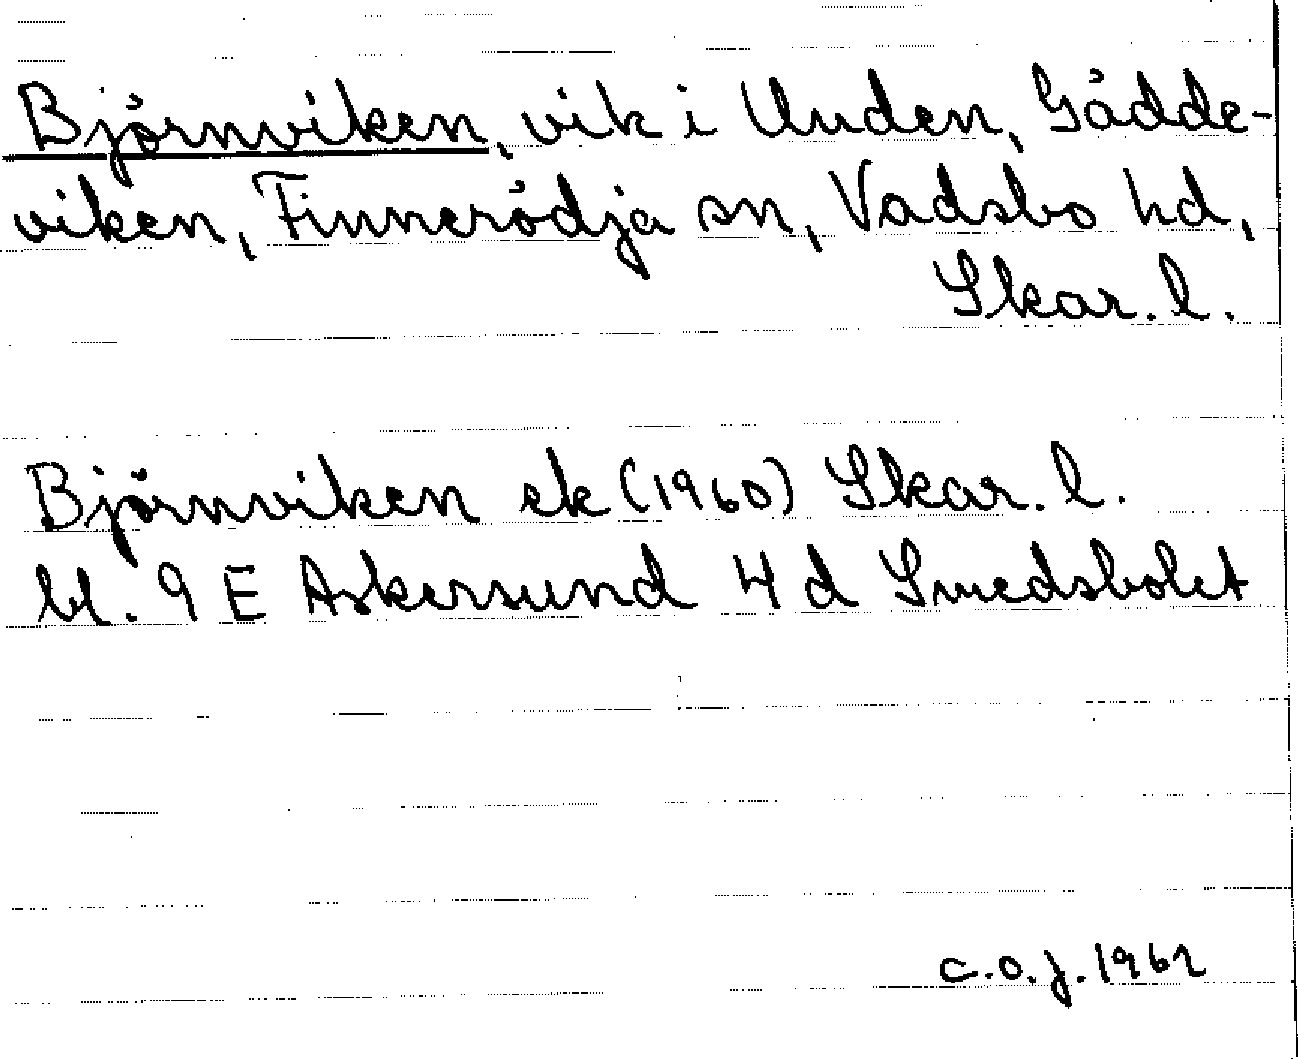 Björnviken, vik i Unden, Gädde-
viken, Finnerödja sn, Vadsbo hd,
Skar. l.
Björnviken ek (1960) Skar. l.
bl. 9 E Askersund 4 d Smedsbolet
C.O.J. 1962